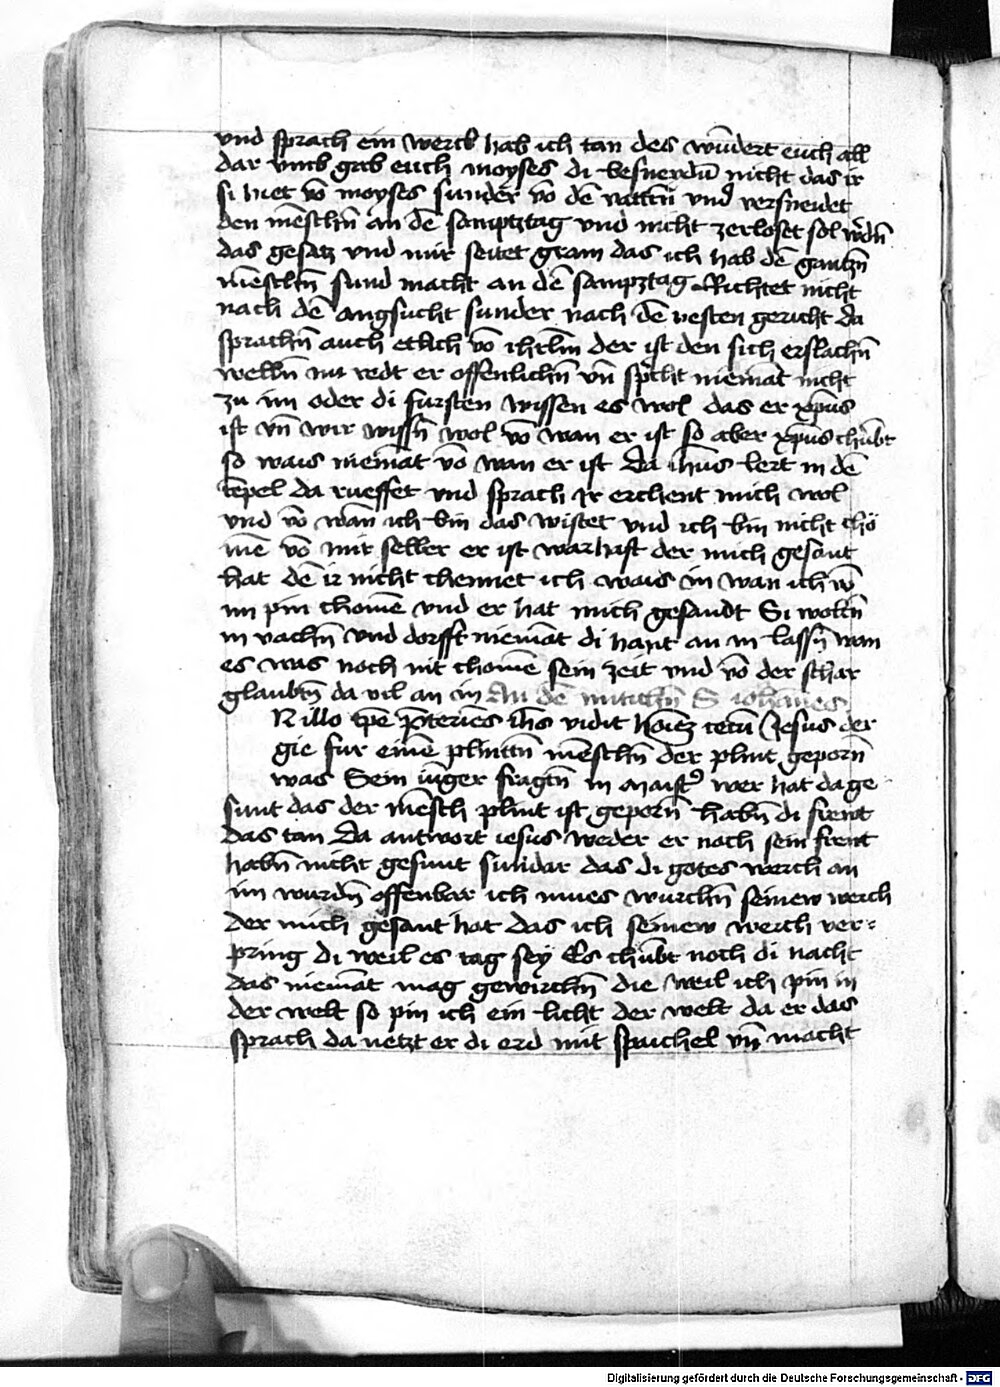 vnd sprach ein werck hab ich tan des wūdert euch all
dar vmb gab euch moyses di besneidū nicht das ir
si hiet vō moyses sunder vō dē vattn̄ vnd versneidet
den mēschn̄ an dē sampztag vnd nicht zerloset sol wˀdn̄
das gesatz vnd mir seitet gram das ich hab dē gantzn̄
mēschn̄ sund macht an dē sampztag Richtet nicht
nach dē angsucht sunder nach dē vesten gericht da
sprachn̄ auch etlich vō ihrlm̄ der ist den sich erslachn̄
welln̄ nu redt er offenlichn̄ vn̄ spicht niemāt nicht
zu im oder di fursten wissen es wol das er xp̄us
ist vn̄ wir wissn̄ wol vō wan er ist so aber xp̄us chūbt
so wais niemāt vō wan er ist Da ih̄us lert in dē
tēpel da rueffet vnd sprach Ir erchent mich wol
vnd vō wān ich bin das wistet vnd ich bin nicht chō
mē vō mir selber er ist warhaft der mich gesant
hat dē ir nicht chennet ich wais in wan ich vō
im pin chomē vnd er hat mich gesandt Si woltn̄
in vachn̄ vnd dorfft niemāt di hant an in lassn̄ wan
es was noch nit chomē sein zeit vnd vō der schar
glaubtn̄ da vil an in An dē mitichn̄ S iohannes
N illo tp̄e p̄teriens ih̄s vidit hoiēz cecū Jesus der
gie fur einē plintn̄ mēschn̄ der plint geporn̄
was Sein iūger fragtn̄ in Maistˀ wer hat da ge
sunt das der mēsch plint ist geporn̄ habn̄ di frewt
das tan Da antwort iesus weder er noch sein frent
habn̄ nicht gesunt sundar das di gotes werch an
im wurdn̄ offenbar ich mues wurchn̄ seinew werch
der mich gesant hat das ich seinew werch ver
pring di weil es tag sey Es chūbt noch di nacht
das niemāt mag gewirchn̄ die weil ich pin in
der welt so pin ich ein licht der welt da er das
sprach da netzt er di erd mit spaichel vn̄ macht
Digitalisierung gefördert durch die Deutsche Forschungsgemeinschaft - DFG